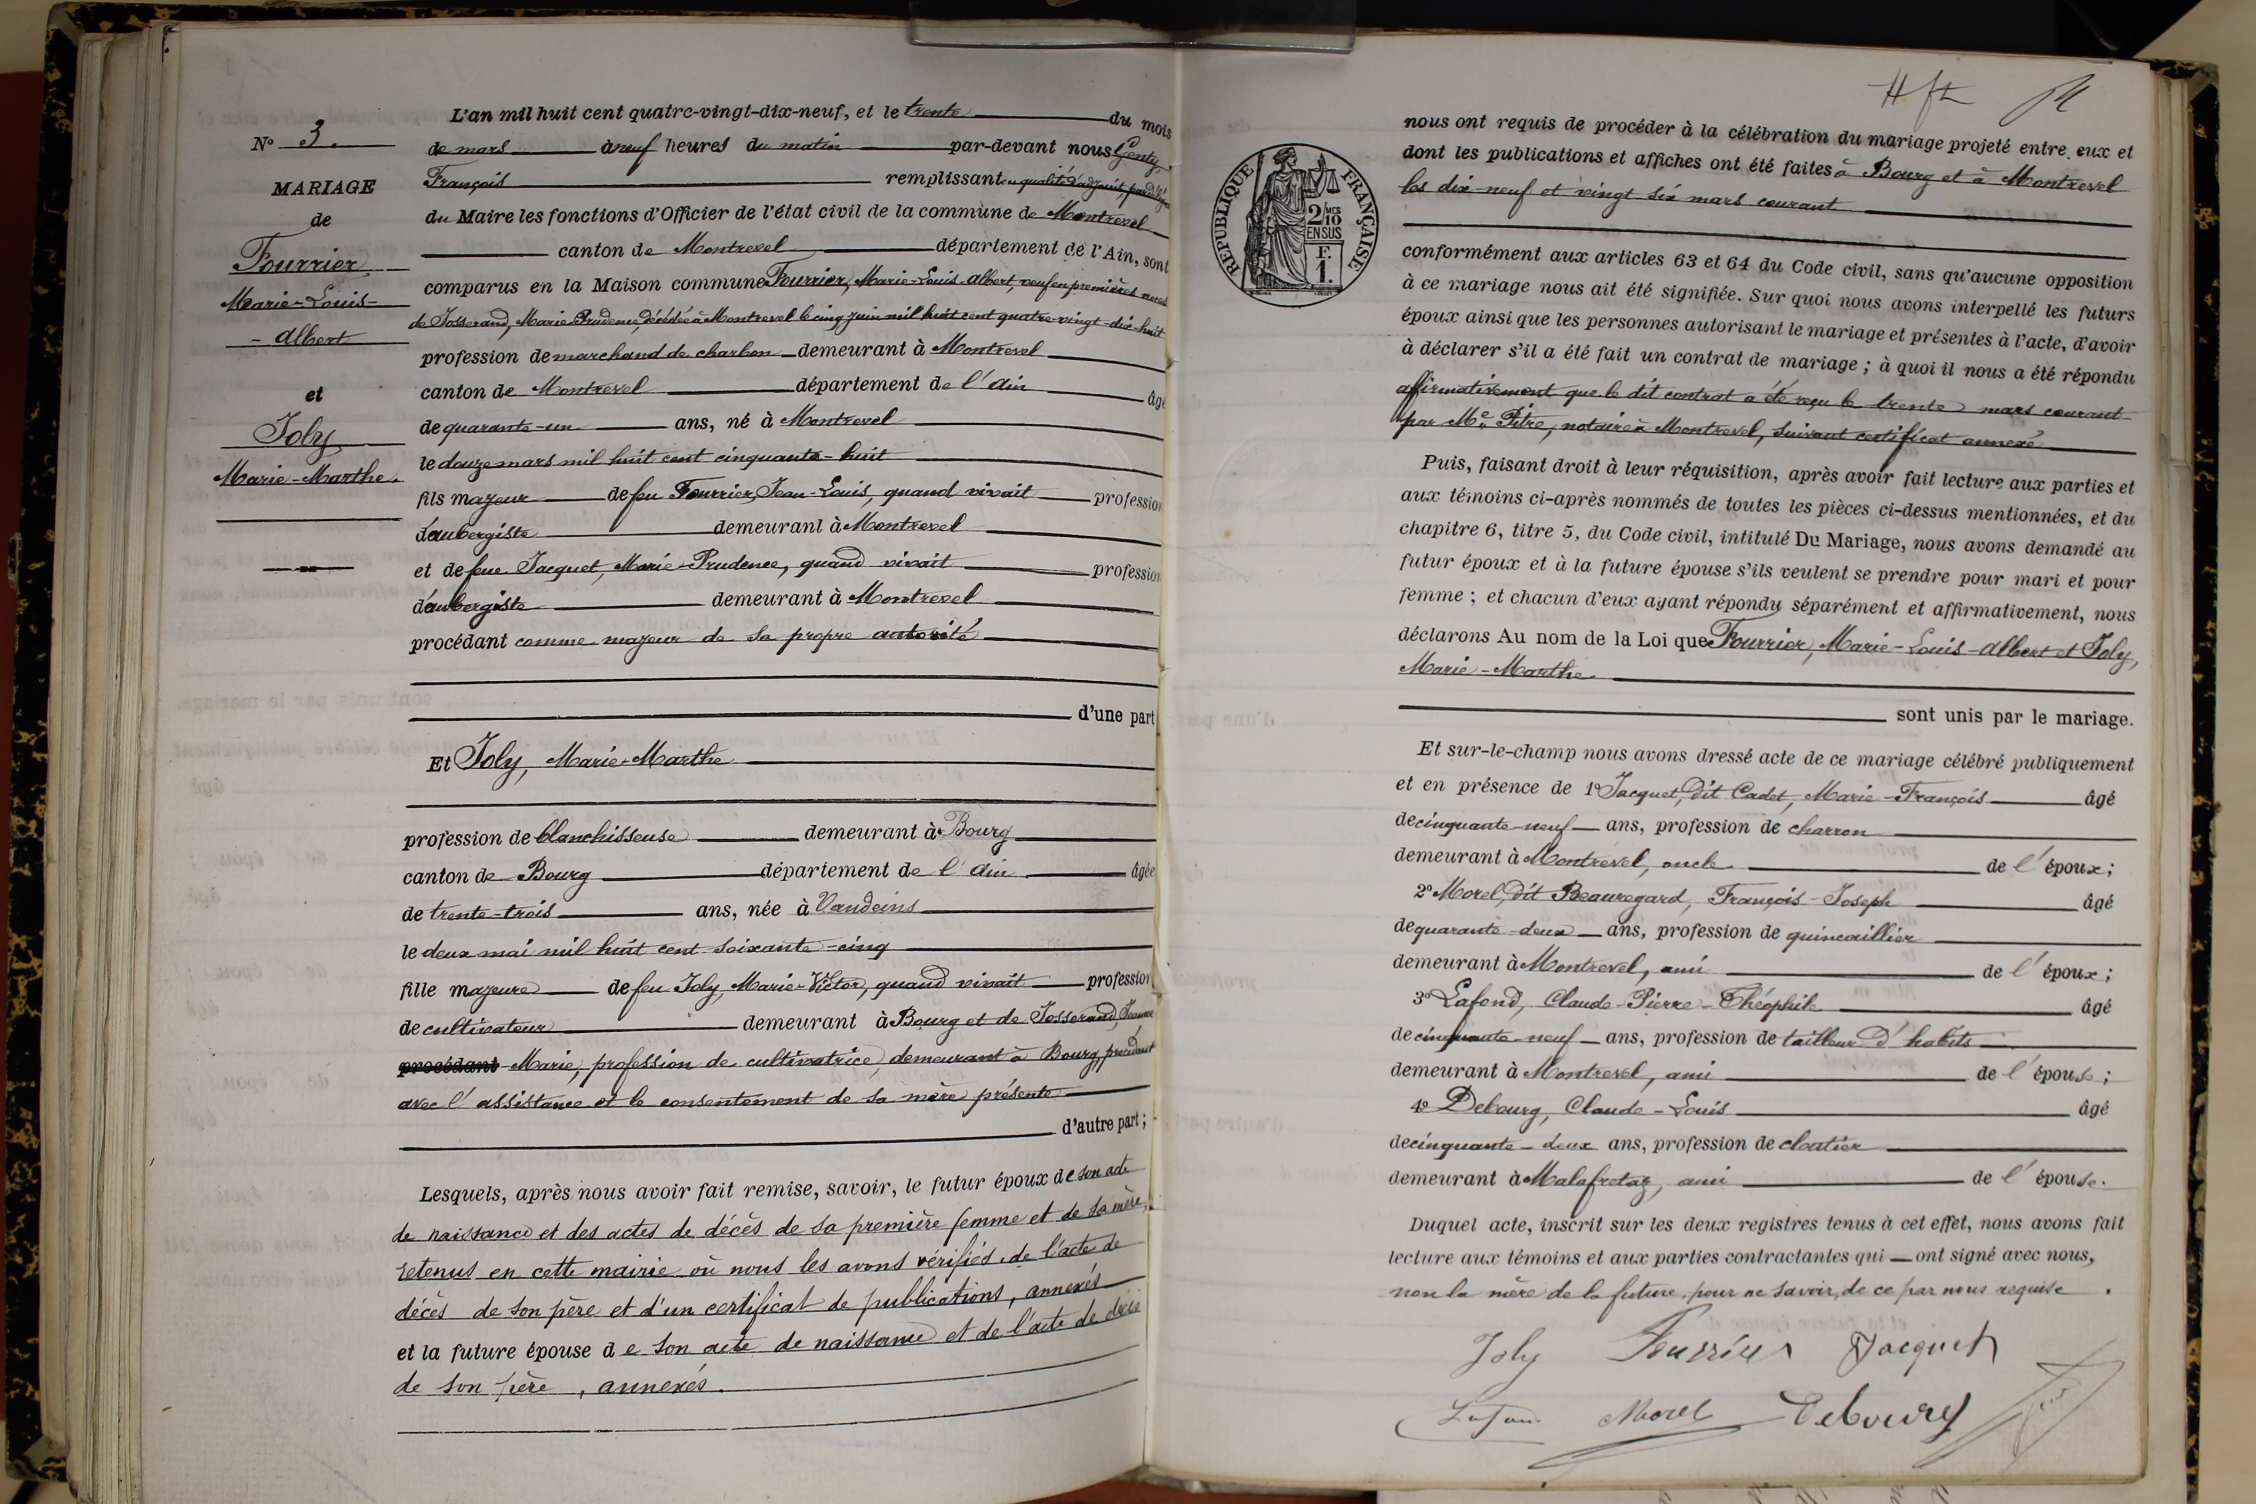 N° 3.
MARIAGE
de
Fourrier
Marie-Louis-
-Albert
et
Joly
Marie-Marthe.
L'an mil huit cent quatre-vingt-dix-neuf, et le trente du mois
de mars à neuf heures du matin par-devant nous Genty,
François remplissant en qualité d'adjoint, par délég
du Maire les fonctions d'Officier de l'état civil de la commune de Montrevel
canton de Montrevel département de l'Ain, sont
comparus en la Maison commune Fourrier, Marie-Louis-Albert, veuf en premières noces
de Josserand, Marie-Prudence, décédée à Montrevel le cinq juin mil huit cent quatre-vingt-dix-huit
profession de marchand de charbon demeurant à Montrevel
canton de Montrevel département de l'Ain âgé
de quarante-un ans, né à Montrevel
le douze mars mil huit cent cinquante-huit
fils majeur de feu Fourrier, Jean-Louis, quand vivait profession
d'aubergiste demeurant à Montrevel
et de feue Jacquet, Marie-Prudence, quand vivait profession
d'aubergiste demeurant à Montrevel
procédant comme majeur de sa propre autorité
d'une part
Et Joly, Marie-Marthe
profession de blanchisseuse demeurant à Bourg
canton de Bourg département de l'Ain âgée
de trente-trois ans, née à Vandeins
le deux mai mil huit cent soixante-cinq
fille majeure de feu Joly, Marie-Victor, quand vivait profession
de cultivateur demeurant à Bourg et de Josserand, Jeanne
procédant Marie, profession de cultivatrice, demeurant à Bourg, procédant
avec l'assistance et le consentement de sa mère présente
d'autre part;
Lesquels, après nous avoir fait remise, savoir, le futur époux de son acte
de naissance et des actes de décès de sa première femme et de sa mère,
retenus en cette mairie où nous les avons vérifiés, de l'acte de
décès de son père et d'un certificat de publications, annexés
et la future épouse de son acte de naissance et de l'acte de décès
de son père, annexés.
RÉPUBLIQUE FRANÇAISE
2/10 MES
EN SUS
F.
1.
nous ont requis de procéder à la célébration du mariage projeté entre eux et
dont les publications et affiches ont été faites à Bourg et à Montrevel
les dix-neuf et vingt six mars courant
conformément aux articles 63 et 64 du Code civil, sans qu'aucune opposition
à ce mariage nous ait été signifiée. Sur quoi nous avons interpellé les futurs
époux ainsi que les personnes autorisant le mariage et présentes à l'acte, d'avoir
à déclarer s'il a été fait un contrat de mariage; à quoi il nous a été répondu
affirmativement que le dit contrat a été reçu le trente mars courant
par Me Pitre, notaire à Montrevel, suivant certificat annexé
Puis, faisant droit à leur réquisition, après avoir fait lecture aux parties et
aux témoins ci-après nommés de toutes les pièces ci-dessus mentionnées, et du
chapitre 6, titre 5, du Code civil, intitulé Du Mariage, nous avons demandé au
futur époux et à la future épouse s'ils veulent se prendre pour mari et pour
femme; et chacun d'eux ayant répondu séparément et affirmativement, nous
déclarons Au nom de la Loi que Fourrier, Marie-Louis-Albert et Joly,
Marie-Marthe
sont unis par le mariage.
Et sur-le-champ nous avons dressé acte de ce mariage célébré publiquement
et en présence de 1° Jacquet, dit Cadet, Marie-François âgé
de cinquante-neuf ans, profession de charron
demeurant à Montrevel, oncle de l'époux;
2° Morel, dit Beauregard, François-Joseph âgé
de quarante-deux ans, profession de quincaillier
demeurant à Montrevel, ami de l'époux;
3° Lafond, Claude-Pierre-Théophile âgé
de cinquante-neuf ans, profession de tailleur d'habits
demeurant à Montrevel, ami de l'épouse;
4° Debourg, Claude-Louis âgé
de cinquante-deux ans, profession de cloutier
demeurant à Malafretaz, ami de l'épouse.
Duquel acte, inscrit sur les deux registres tenus à cet effet, nous avons fait
lecture aux témoins et aux parties contractantes qui ont signé avec nous,
non la mère de la future, pour ne savoir, de ce par nous requise.
Joly Fourrier Jacquet
Morel Debourg